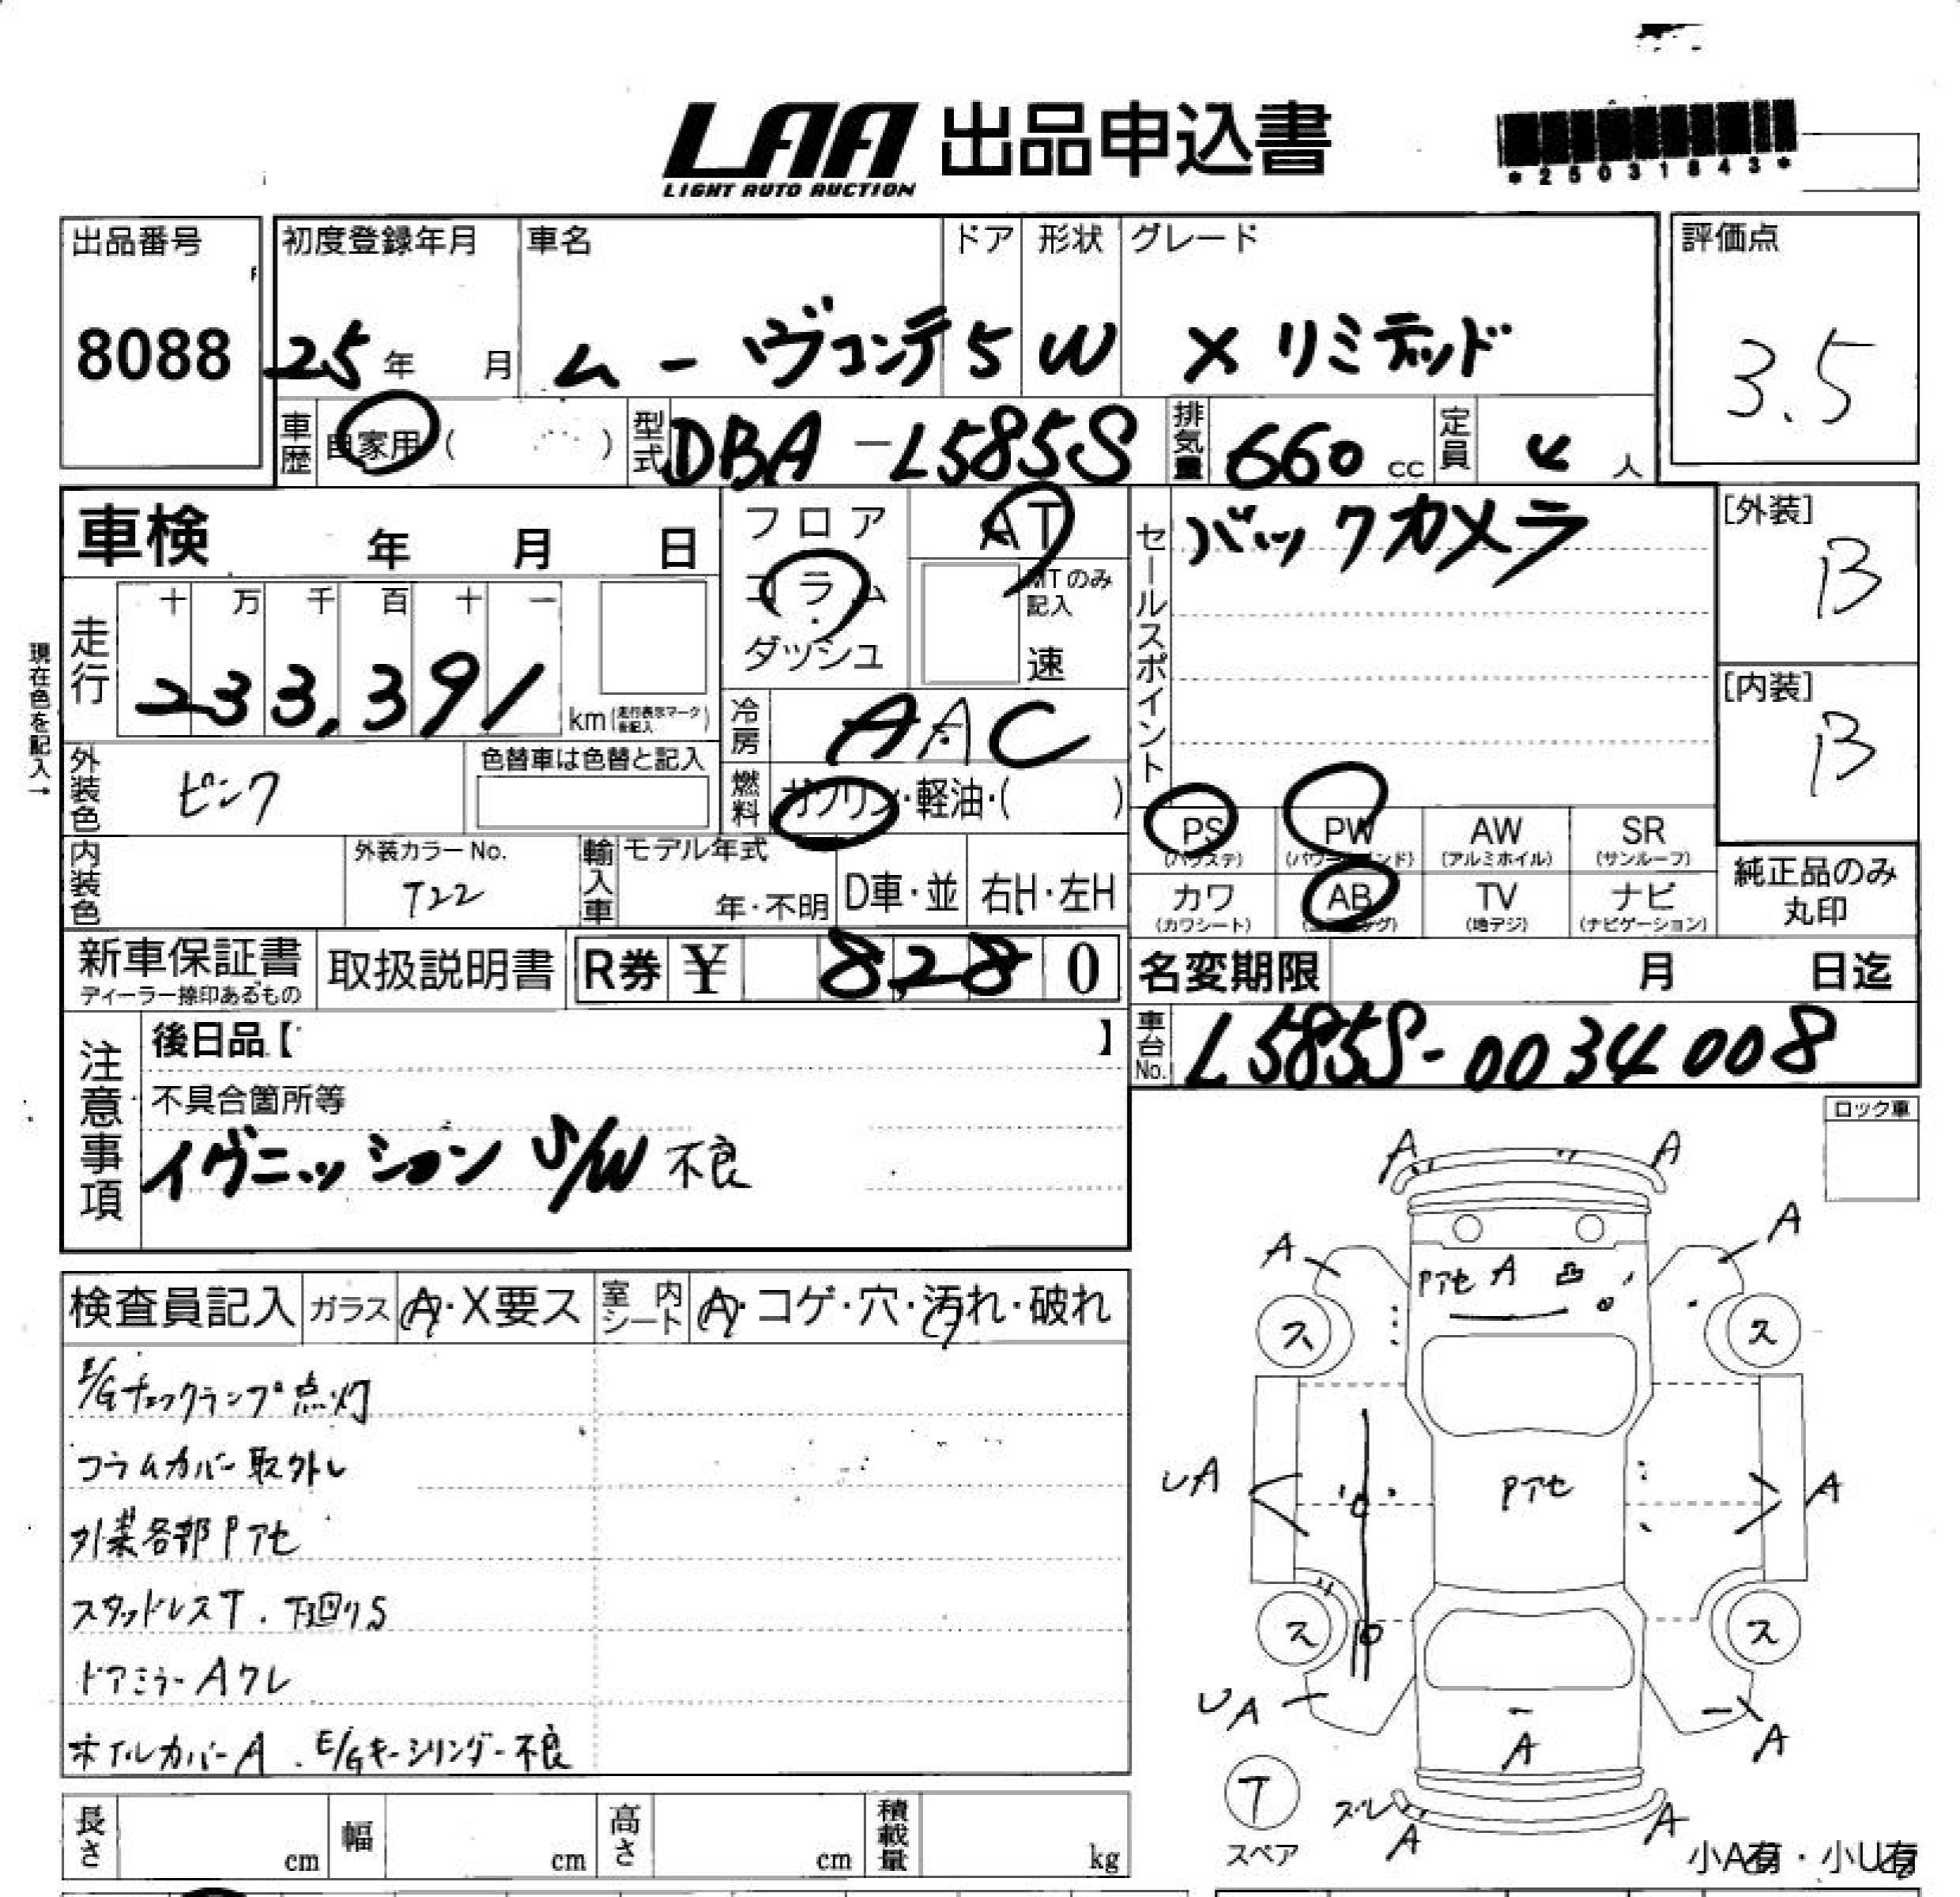 LAA 出品申込書
LIGHT AUTO AUCTION
*25031843*
出品番号
8088
初度登録年月
25年 月
車名
ムーヴコンテ
ドア
5
形状
W
グレード
Xリミテッド
評価点
3.5
車歴 自家用 ( )
型式 DBA-L585S
排気量 660 cc
定員 4 人
車検 年 月 日
フロア
コラム
ダッシュ
AT
MTのみ記入
速
セールスポイント
バックカメラ
[外装]
B
[内装]
B
現在色を記入→
走行
十 万 千 百 十 一
233,391 km (走行表示マークを記入)
冷房 AAC
燃料 ガソリン・軽油・( )
外装色 ピンク
色替車は色替と記入
内装色
外装カラーNo.
T22
輸入車
モデル年式
年・不明
D車・並
右H・左H
PS
(パワステ)
PW
(パワーウインド)
AW
(アルミホイル)
SR
(サンルーフ)
カワ
(カワシート)
AB
(エアバッグ)
TV
(地デジ)
ナビ
(ナビゲーション)
純正品のみ
丸印
新車保証書
ディーラー捺印あるもの
取扱説明書
R券 ¥ 8,280
名変期限 月 日迄
車台No. L585S-0034008
注意事項
後日品【 】
不具合箇所等
イグニッション S/W 不良
ロック車
検査員記入
ガラス A・X要ス
室内シート A・コゲ・穴・汚れ・破れ
E/Gチェックランプ点灯
コラムカバー取外し
外装各部Pアセ
スタッドレスT.下廻りS
ドアミラーAワレ
ホイルカバーA.E/Gキーシリンダー不良
A A
A A
Pアセ A 凸
ス ス
UA Pアセ A
ス ス
UA A A
T
スペア
ズレ A A
小A有・小U有
長さ cm
幅 cm
高さ cm
積載量 kg